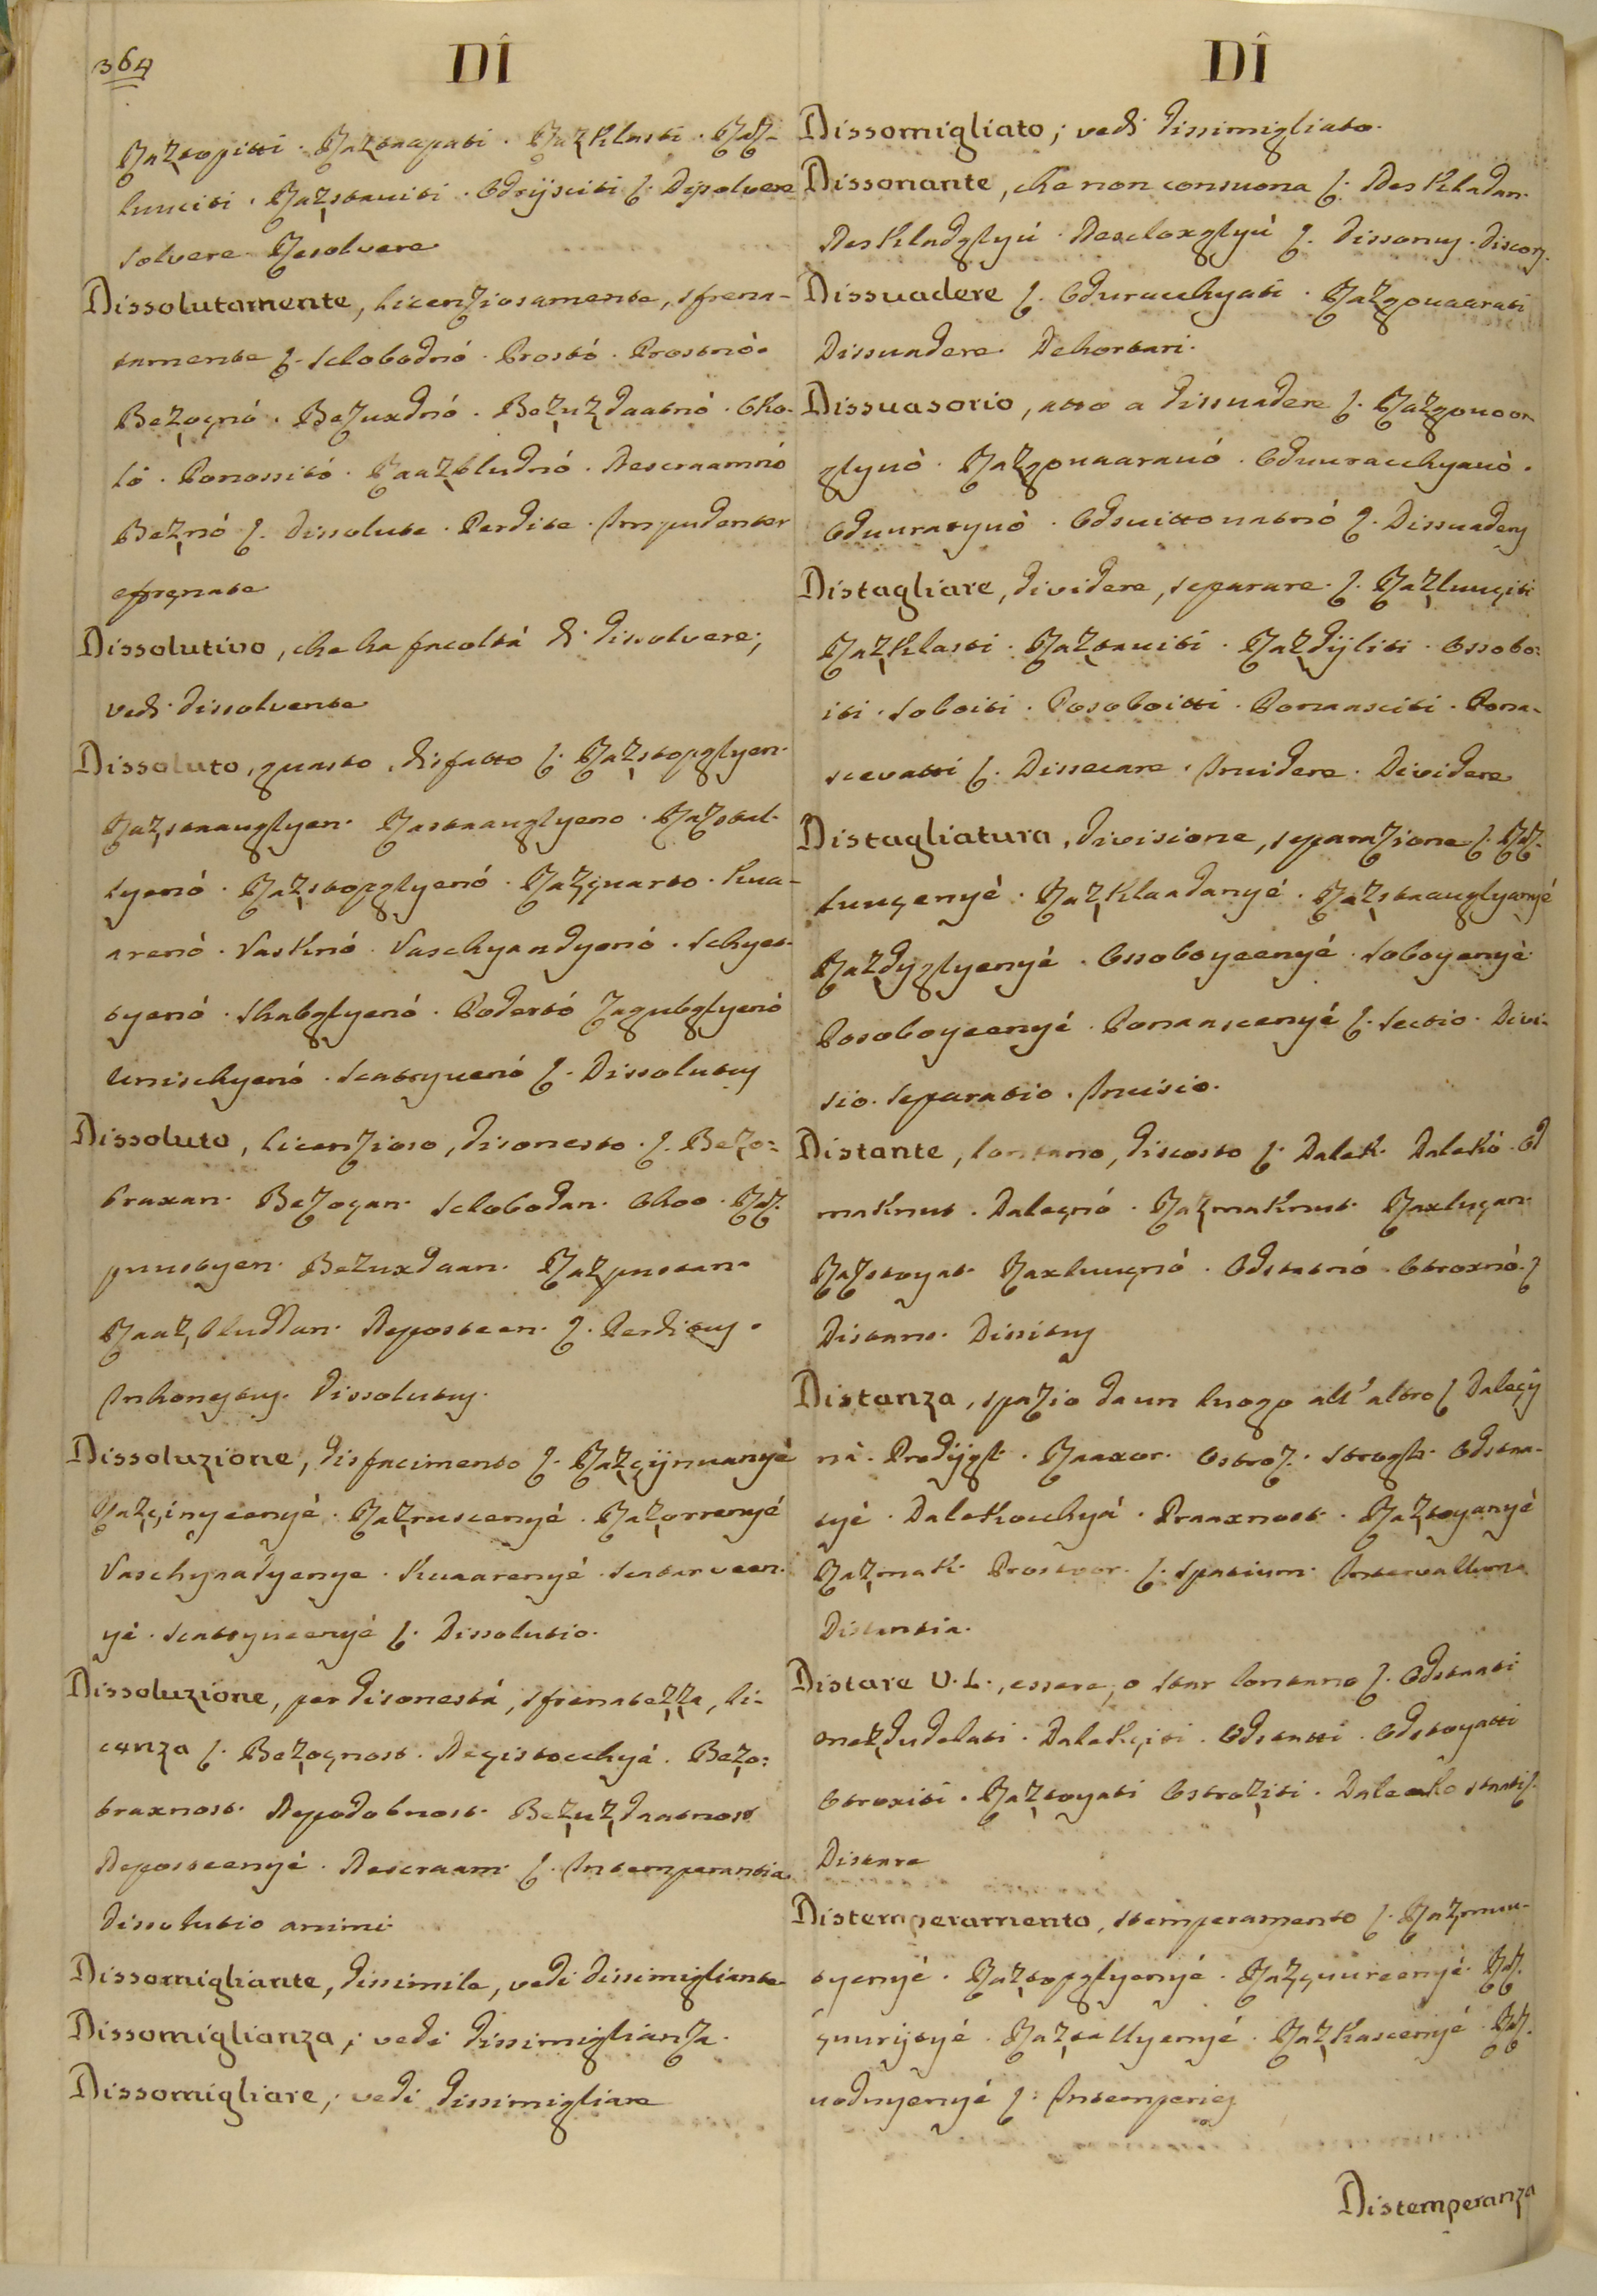 364
DÎ
Raz̩topitti. Raz̩taapati. Raz̩klasti. Raz-
lunciti. Raz̩stauiti. Odrijsciti ʃ. Dissolvere
Solvere. Resolvere
Dissolutamente, licenziosamente, sfrena-
tamente ʃ. Sclobodnó. Prostó. Prostnó.
Bez̩oçnó. Bezuxdnó. Bez̩uz̩daatnó. Oho-
ló. Ponossitó. Raaz̩bludnó. Nescraamnó
Bez̩nó ʃ. Dissolute. Perdite. Impudenter
efrenate
Dissolutivo, che ha facoltà di dissolvere;
vedi dissolvente
Dissoluto, guasto, disfatto ʃ. Raz̩stopglyen.
Raz̩staauglyen. Rastaauglyeno. Raztal-
lyenó. Raz̩stopglyenó. Raz̩çuarto. Kua-
arenó. Vasknó. Vaschyaadyenó. Schyet-
tyenó. Skabglyenó. Podertó Zagubglyenó
Unischyenó. Scatryuenó ʃ. Dissolutus
Dissoluto, licenzioso, disonesto. ʃ. Bezo=
braxan. Bezoçan. Sclobodan. Ohoo. Raz-
puustyen. Bezuxdaan. Raz̩pustan.
Raaz̩bluddan. Neposteen. ʃ. Perditus.
Inhonestus. Dissolutus.
Dissoluzione, disfacimento ʃ. Raz̩çijnuanyé
Raz̩çinyeenyé. Raz̩ruscenyé. Raz̩orrenyé
Vaschyaadyenye. Kuaarenyé. Scatarveen-
yé. Scatryueenyé ʃ. Dissolutio.
Dissoluzione, per disonestà, sfrenatezza, li-
cenza ʃ. Bez̩oçnost. Neçistocchyá. Bez̩o=
braxnost. Nepodobnost. Bez̩uz̩daatnost
Neposteenyé. Nescraam. ʃ. Intemperantia.
Dissolutio animi.
Dissomigliante, dissimile, vedi dissimigliante
Dissomiglianza; vedi dissimiglianza.
Dissomigliare; vedi dissimigliare
DÎ
Dissomigliato; vedi dissimigliato.
Dissonante, che non consuona ʃ. Neskladan.
Neskladglyú. Nescloxglyú ʃ. Dissonus. Discors.
Dissuadere ʃ. Oduracchyati. Raz̩gouaarati
Dissuadere. Dehortari.
Dissuasorio, atto a dissuadere ʃ. Raz̩gouoor-
glyuó. Raz̩gouaarauó. Oduuracchyauó.
Oduuratyuó. Odsuittouatnó ʃ. Dissuadens
Distagliare, dividere, separare. ʃ. Raz̩luuçiti
Raz̩klasti. Raz̩tauiti. Raz̩dijliti. Ossobo=
iti. Soboiti. Posoboitti. Pomaasciti. Poma-
scevatti ʃ. Dissecare. Incidere. Dividere
Distagliatura, divisione, separazione ʃ. Raz-
luuçenyé. Raz̩klaadanyé. Raz̩staauglyanyé
Raz̩dyglyenyé. Ossoboyeenyé. Soboyenyé
Posoboyeenyé. Pomaascenyé ʃ. Sectio. Divi-
sio. Separatio. Incisio.
Distante, lontano, discosto ʃ. Dalek. Dalekó. Od
maknut. Daleçnó. Raz̩maknut. Razluçan.
Razstoyat. Raxluuçnó. Odstatnó. Otroxnó. ʃ
Distans. Dissitus
Distanza, spazio da un luogo all' altro ʃ Daleçij
nà. Prodijgt. Raaxor. Ostroz. Strogst. Odstaa-
tyé. Dalekocchyá. Praaxnost. Raz̩toyanyé
Raz̩mak. Prostoor. ʃ. Spatium. Intervallum
Distantia.
Distare V. L., essere, o star lontano ʃ. Odstaati
onez̩dudelati. Dalekçiti. Odstatti. Odstoyatti
Otroxiti. Raz̩toyati Ostroz̩iti. Daleeko staati ʃ.
Distare
Distemperamento, stemperamento ʃ. Raz̩muu-
tyenyé. Raz̩topglyenyé. Raz̩çuureenyé. Raz-
çuurijtyé. Raz̩tallyenyé. Raz̩kascenyé. Raz-
uodnyenyé ʃ: Intemperies
Distemperanza